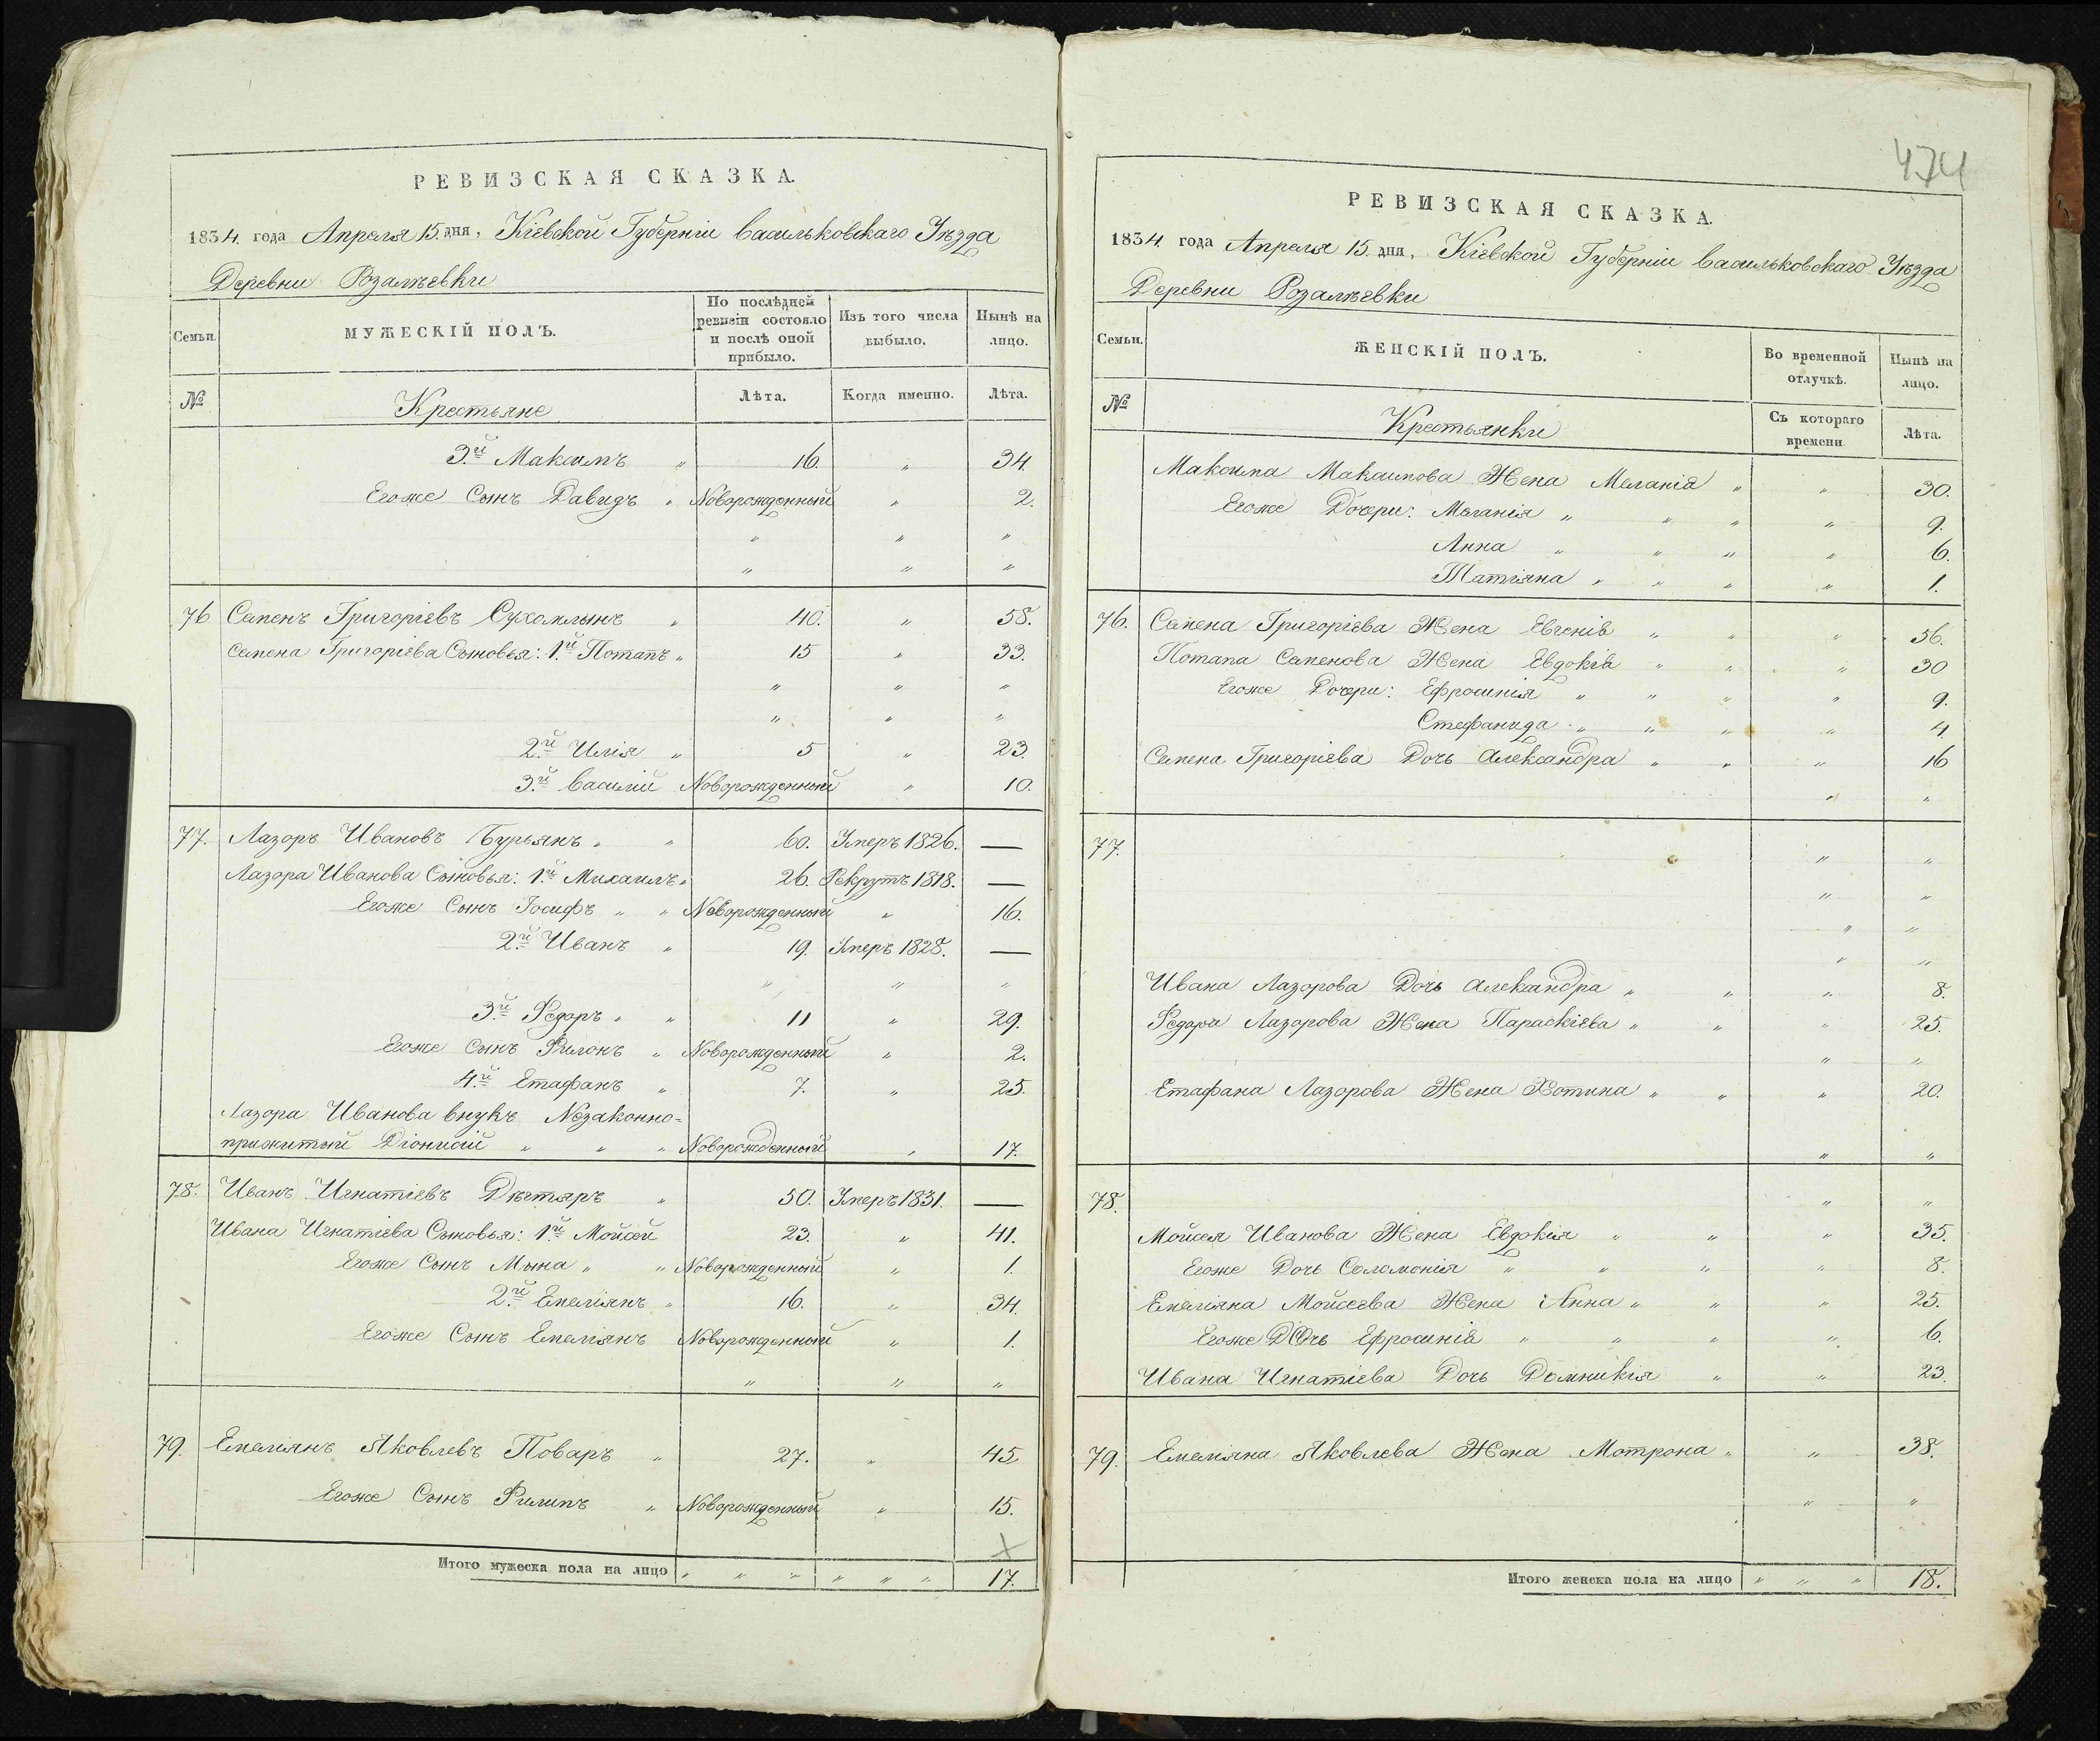 РЕВИЗСКАЯ СКАЗКА.
1834 года Апреля 15 дня, Кіевской Губерніи Васильковскаго Уѣзда
Деревни Розалѣевки
Семьи. МУЖЕСКІЙ ПОЛЪ. По послѣдней ревизіи состояло и послѣ оной прибыло. Изъ того числа выбыло. Нынѣ на лицо.
№ Крестьяне Лѣта. Когда именно. Лѣта.
3.й Максимъ " 16. " 34.
Егоже Сынъ Давидъ " Новорожденный " 2.
" " "
" " "
76 Семенъ Григоріевъ Сухомлынъ " 40. " 58.
Семена Григоріева Сыновья: 1.й Потапъ " 15 " 33.
" " "
" " "
2.й Илія " 5 " 23.
3.й Василій Новорожденный " 10.
77. Лазоръ Ивановъ Бурьянъ " " 60. Умеръ 1826. —
Лазора Иванова Сыновья: 1.й Михаилъ " 26. Рекрутъ 1818. —
Егоже Сынъ Іосифъ " " Новорожденный " 16.
2.й Иванъ " 19. Умеръ 1828. —
" " "
3.й Федоръ " " 11 " 29.
Егоже Сынъ Филонъ " Новорожденный " 2.
4.й Етафанъ " 7. " 25.
Лазора Иванова внукъ Незаконно=
прижитый Діонисій " " " Новорожденный " 17.
78. Иванъ Игнатіевъ Дѣгтяръ " 50. Умеръ 1831. —
Ивана Игнатіева Сыновья: 1.й Мойсей 23. " 41.
Егоже Сынъ Мына " " Новорожденный " 1.
2.й Емеліянъ " 16. " 34.
Егоже Сынъ Емеліянъ Новорожденный " 1.
" " "
79. Емеліянъ Яковлевъ Поваръ " 27. " 45
Егоже Сынъ Филипъ " Новорожденный " 15.
Итого мужеска пола на лицо " " " " " " 17.
474
РЕВИЗСКАЯ СКАЗКА.
1834 года Апреля 15 дня, Кіевской Губерніи Васильковскаго Уѣзда
Деревни Розалѣевки
Семьи. ЖЕНСКІЙ ПОЛЪ. Во временной отлучкѣ. Нынѣ на лицо.
№ Крестьянки Съ котораго времени. Лѣта.
Максима Максимова Жена Меланія " " 30.
Егоже Дочери: Меланія " " " " 9.
Анна " " " " 6.
Татіяна " " " " 1.
76. Семена Григоріева Жена Евгенія " " " 56.
Потапа Семенова Жена Евдокія " " " 30
Егоже Дочери: Ефросинія " " " " 9.
Стефанида " " " " 4
Семена Григоріева Дочь Александра " " " 16
" "
77. " "
" "
" "
" "
Ивана Лазорова Дочь Александра " " " 8.
Федора Лазорова Жена Параскіева " " " 25.
" "
Етафана Лазорова Жена Хотина " " " 20.
" "
78. " "
Мойсея Иванова Жена Евдокія " " " 35.
Егоже Дочь Соломонія " " " " 8.
Емеліяна Мойсеева Жена Анна " " " 25.
Егоже Дочь Ефросинія " " " " 6.
Ивана Игнатіева Дочь Домникія " " 23.
79. Емеліяна Яковлева Жена Мотрона " " 38.
" "
Итого женска пола на лицо " " " 18.